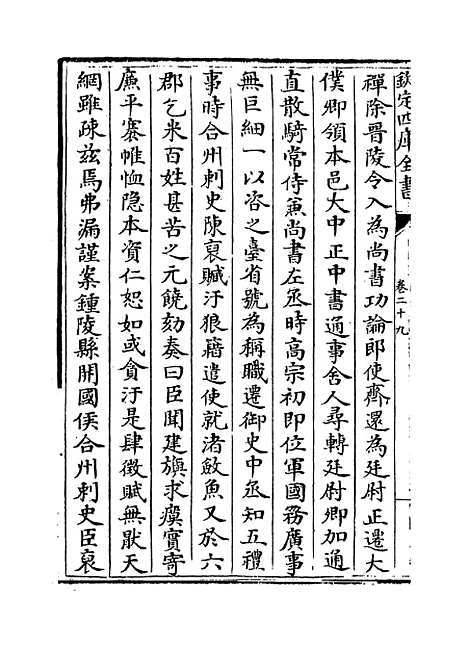 欽定四庫全書
卷二十九
禪除晉陵令入為尚書功論郎使齊還為廷尉正遷大
僕卿領本邑大中正中書通事舍人尋轉廷尉卿加通
直散騎常侍兼尚書左丞時高宗初即位軍國務廣事
無巨細一以咨之臺省號為稱職遷御史中丞知五禮
事時合州刺史陳裒贓汙狼藉遣使就渚斂魚又於六
郡乞米百姓甚苦之元饒劾奏曰臣聞建旟求瘼實寄
廉平褰帷恤隱本資仁恕如或貪汙是肆徵賦無厭天
網雖疎茲焉弗漏謹案鍾陵縣開國侯合州刺史臣裒